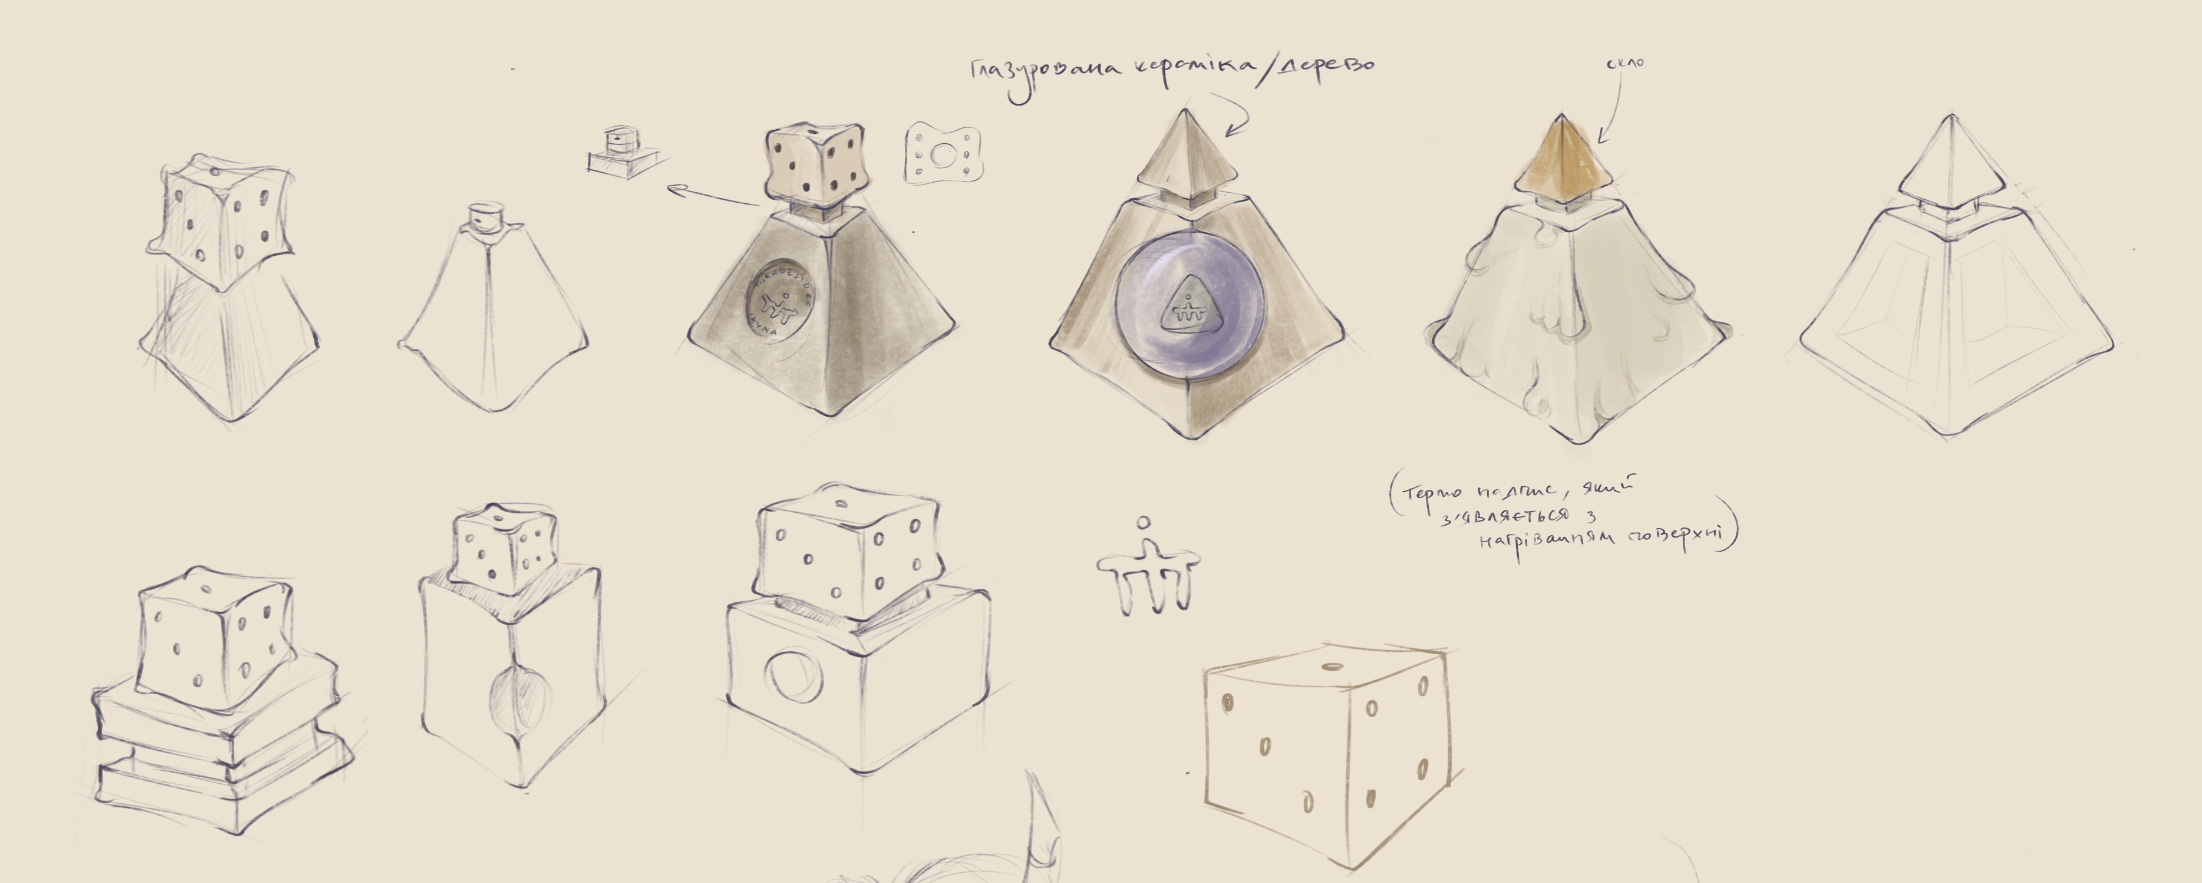 Глазурована кераміка/дерево
скло
(термо надпис, який
з'являється з
нагріванням поверхні)